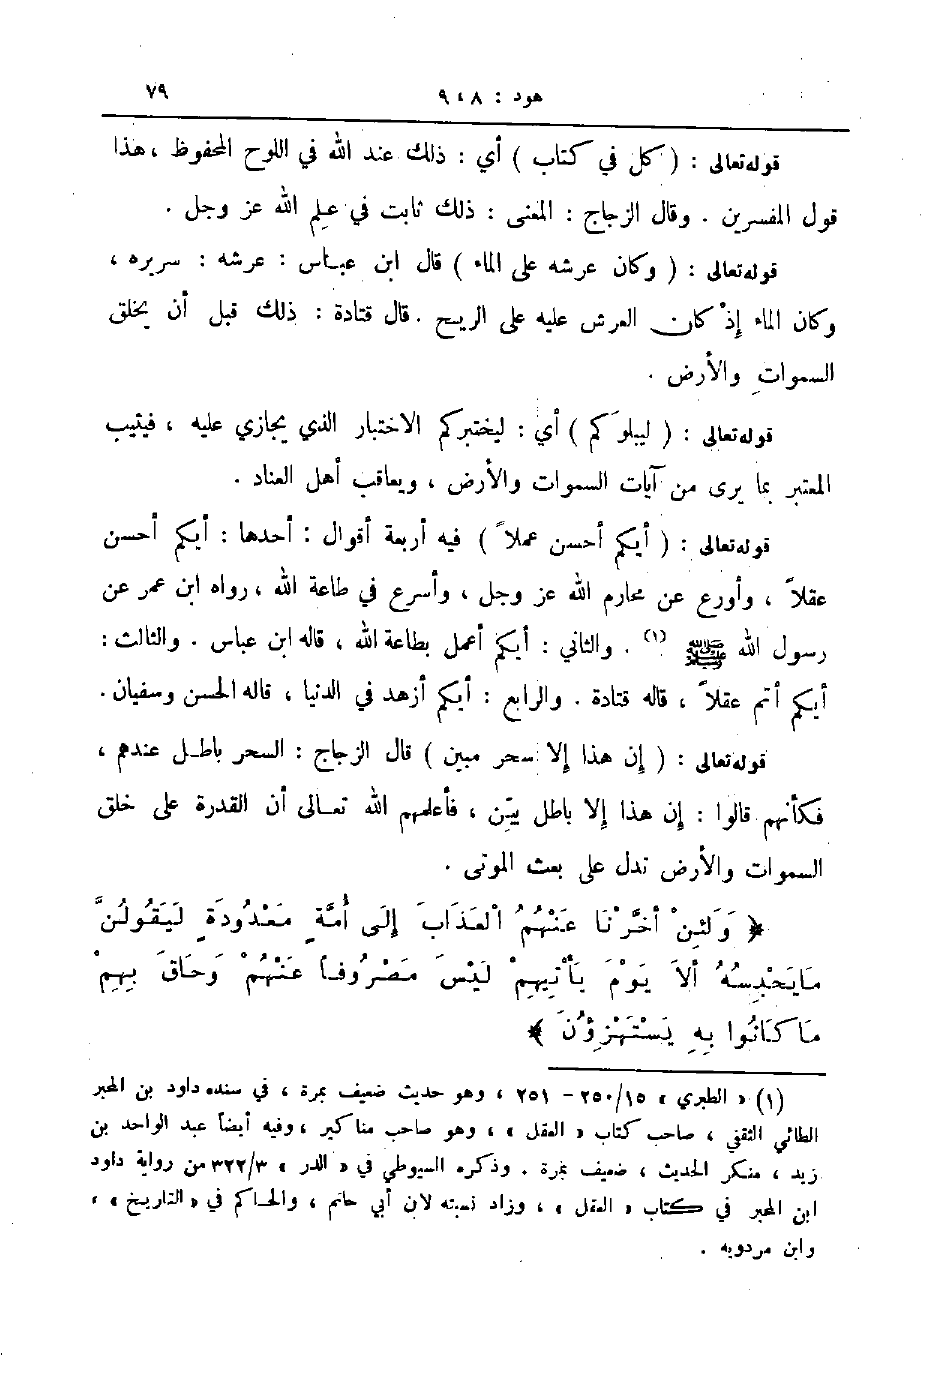 هود : ٨ ، ٩ ٧٩
قوله تعالى : ( كل في كتاب ) أي : ذلك عند الله في اللوح المحفوظ ، هذا
قول المفسرين . وقال الزجاج : المعنى : ذلك ثابت في علم الله عز وجل .
قوله تعالى : ( وكان عرشه على الماء ) قال ابن عباس : عرشه : سريره ،
وكان الماء إذْ كان العرش عليه على الريح . قال قتادة : ذلك قبل أن يخلق
السموات والأرض .
قوله تعالى : ( ليبلوَكم ) أي : ليختبركم الاختبار الذي يجازي عليه ، فيثيب
المعتبر بما يرى من آيات السموات والأرض ، ويعاقب أهل العناد .
قوله تعالى : ( أيكم أحسن عملاً ) فيه أربعة أقوال : أحدها : أيكم أحسن
عقلاً ، وأورع عن محارم الله عز وجل ، وأسرع في طاعة الله ، رواه ابن عمر عن
رسول الله ﷺ (١) . والثاني : أيكم أعمل بطاعة الله ، قاله ابن عباس . والثالث :
أيكم أتم عقلاً ، قاله قتادة . والرابع : أيكم أزهد في الدنيا ، قاله الحسن وسفيان .
قوله تعالى : ( إن هذا إلا سحر مبين ) قال الزجاج : السحر باطل عندهم ،
فكأنهم قالوا : إن هذا إلا باطل بيّن ، فأعلمهم الله تعالى أن القدرة على خلق
السموات والأرض تدل على بعث الموتى .
﴿ وَلَئِنْ أَخَّرْنَا عَنْهُمُ الْعَذَابَ إِلَى أُمَّةٍ مَعْدُودَةٍ لَيَقُولُنَّ
مَا يَحْبِسُهُ أَلاَ يَوْمَ يَأْتِيهِمْ لَيْسَ مَصْرُوفاً عَنْهُمْ وَحَاقَ بِهِمْ
مَا كَانُوا بِهِ يَسْتَهْزِؤُنَ ﴾
(١) « الطبري » ١٥/٢٥٠ - ٢٥١ ، وهو حديث ضعيف بمرة ، في سنده داود بن المحبر
الطائي الثقفي ، صاحب كتاب « العقل » ، وهو صاحب مناكير ، وفيه أيضاً عبد الواحد بن
زيد ، منكر الحديث ، ضعيف بمرة . وذكره السيوطي في « الدر » ٣/٣٢٢ من رواية داود
ابن المحبر في كتاب « العقل » ، وزاد نسبته لابن أبي حاتم ، والحاكم في « التاريخ » ،
وابن مردويه .